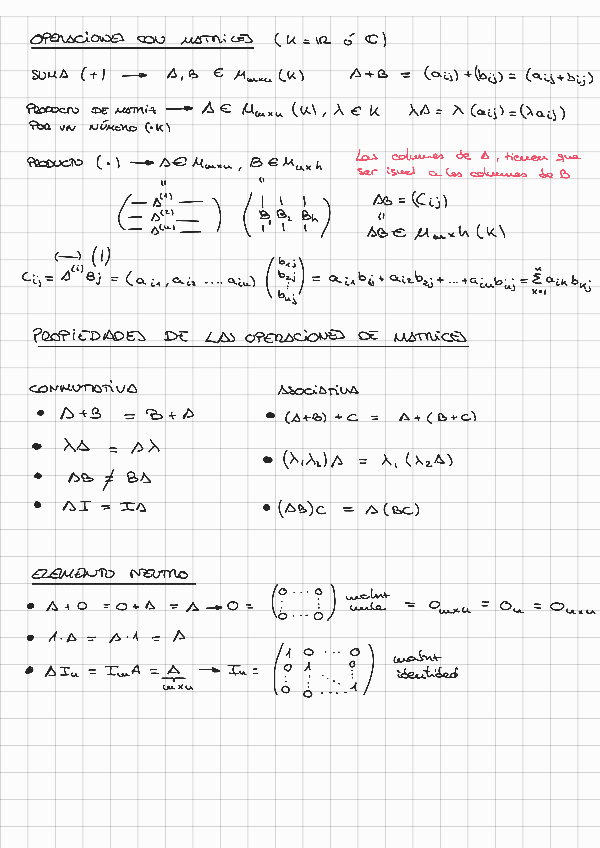 OPERACIONES CON MATRICES (K = ℝ ó ℂ)
SUMA (+) → A, B ∈ M_{m×n} (K) A+B = (a_{ij}) + (b_{ij}) = (a_{ij} + b_{ij})
PRODUCTO DE MATRIZ → A ∈ M_{m×n} (K), λ ∈ K λA = λ (a_{ij}) = (λa_{ij})
POR UN NÚMERO (·K)
PRODUCTO (·) → A ∈ M_{m×n}, B ∈ M_{n×h} Las columnas de A, tienen que
ser igual a las columnas de B
(— A^{(1)} — — A^{(2)} — — A^{(n)} —) (B B_2 B_h) AB = (C_{ij})
AB ∈ M_{m×h} (K)
(—) (|)
C_{ij} = A^{(i)} B_j = (a_{i1}, a_{i2} .... a_{in}) (b_{1j} b_{2j} ⋮ b_{nj}) = a_{i1} b_{1j} + a_{i2} b_{2j} + ... + a_{in} b_{nj} = ∑_{k=1}^{n} a_{ik} b_{kj}
PROPIEDADES DE LAS OPERACIONES DE MATRICES
CONMUTATIVA ASOCIATIVA
• A+B = B+A • (A+B)+C = A+(B+C)
• λA = Aλ • (λ_1λ_2)A = λ_1 (λ_2 A)
• AB ≠ BA
• AI = IA • (AB)C = A(BC)
ELEMENTO NEUTRO
• A+0 = 0+A = A → 0 = (0 ... 0 ⋮ ⋮ 0 ... 0) matriz nula = 0_{m×n} = 0_n = 0_{n×n}
• 1·A = A·1 = A
• AI_n = I_m A = A_{m×n} → I_n = (1 0 ... 0 0 1 0 ⋮ ⋮ ⋱ ⋮ 0 0 ... 1) matriz
identidad